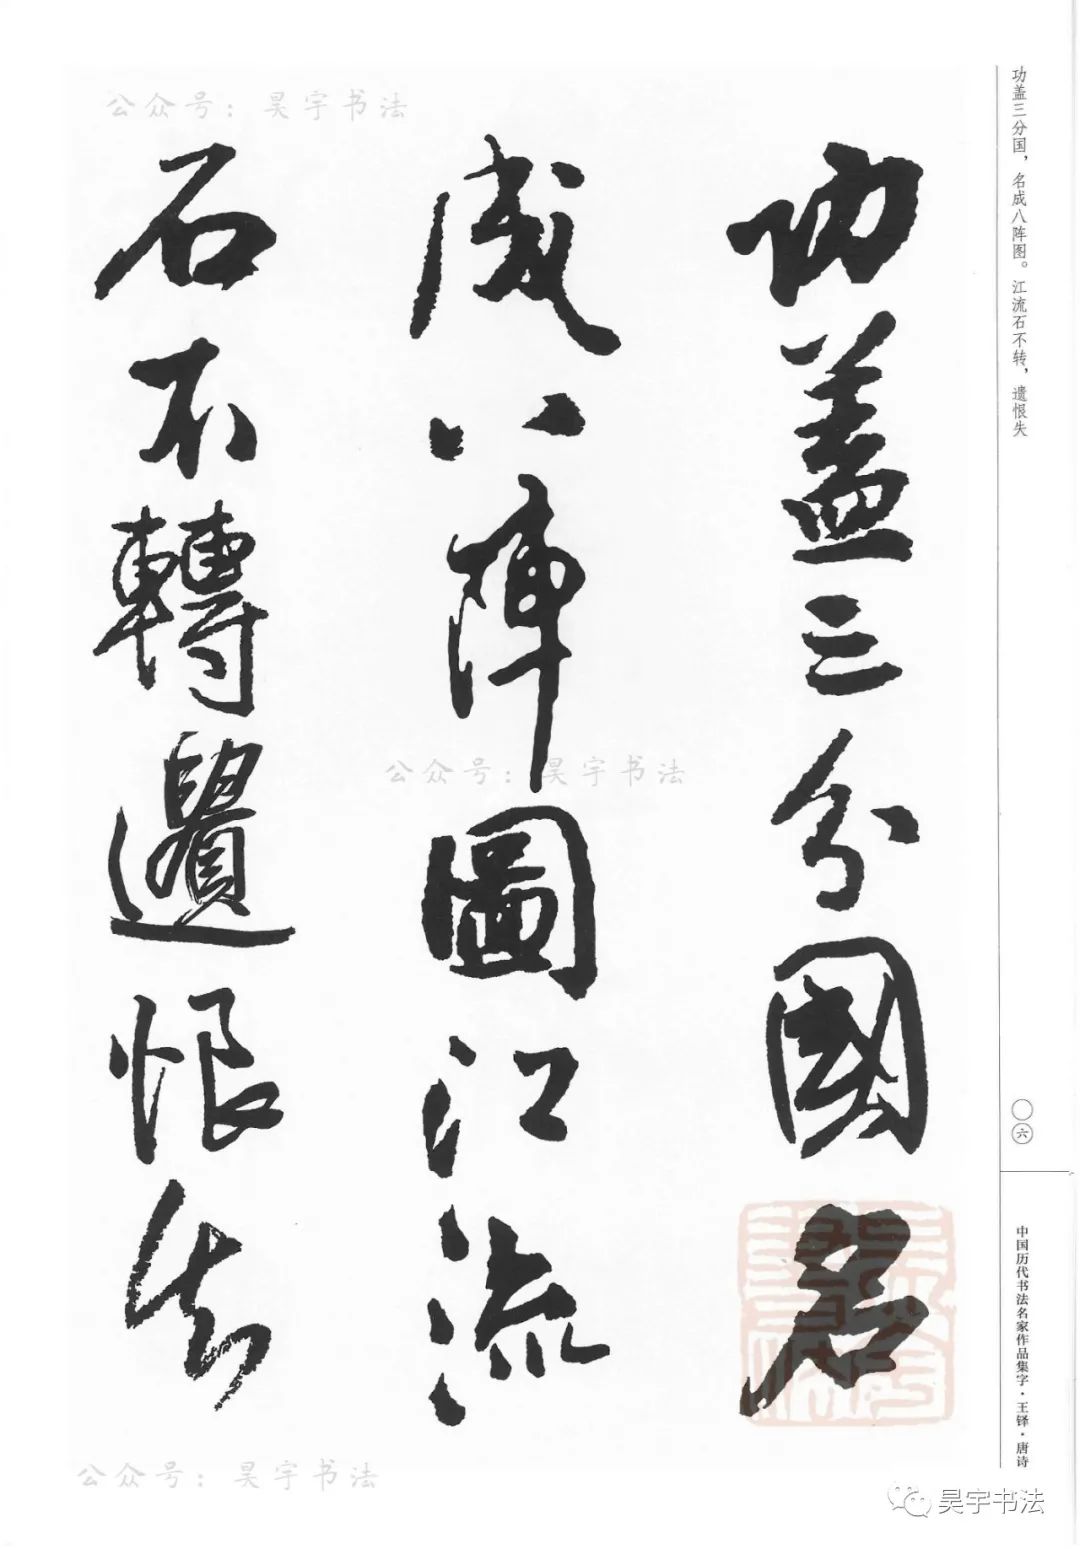 功盖三分国，名成八阵图。江流石不转，遗恨失
功盖三分國名
成八陣圖江流
石不轉遺恨失
〇六
中国历代书法名家作品集字·王铎·唐诗
公众号：昊宇书法
公众号：昊宇书法
公众号：昊宇书法
昊宇书法